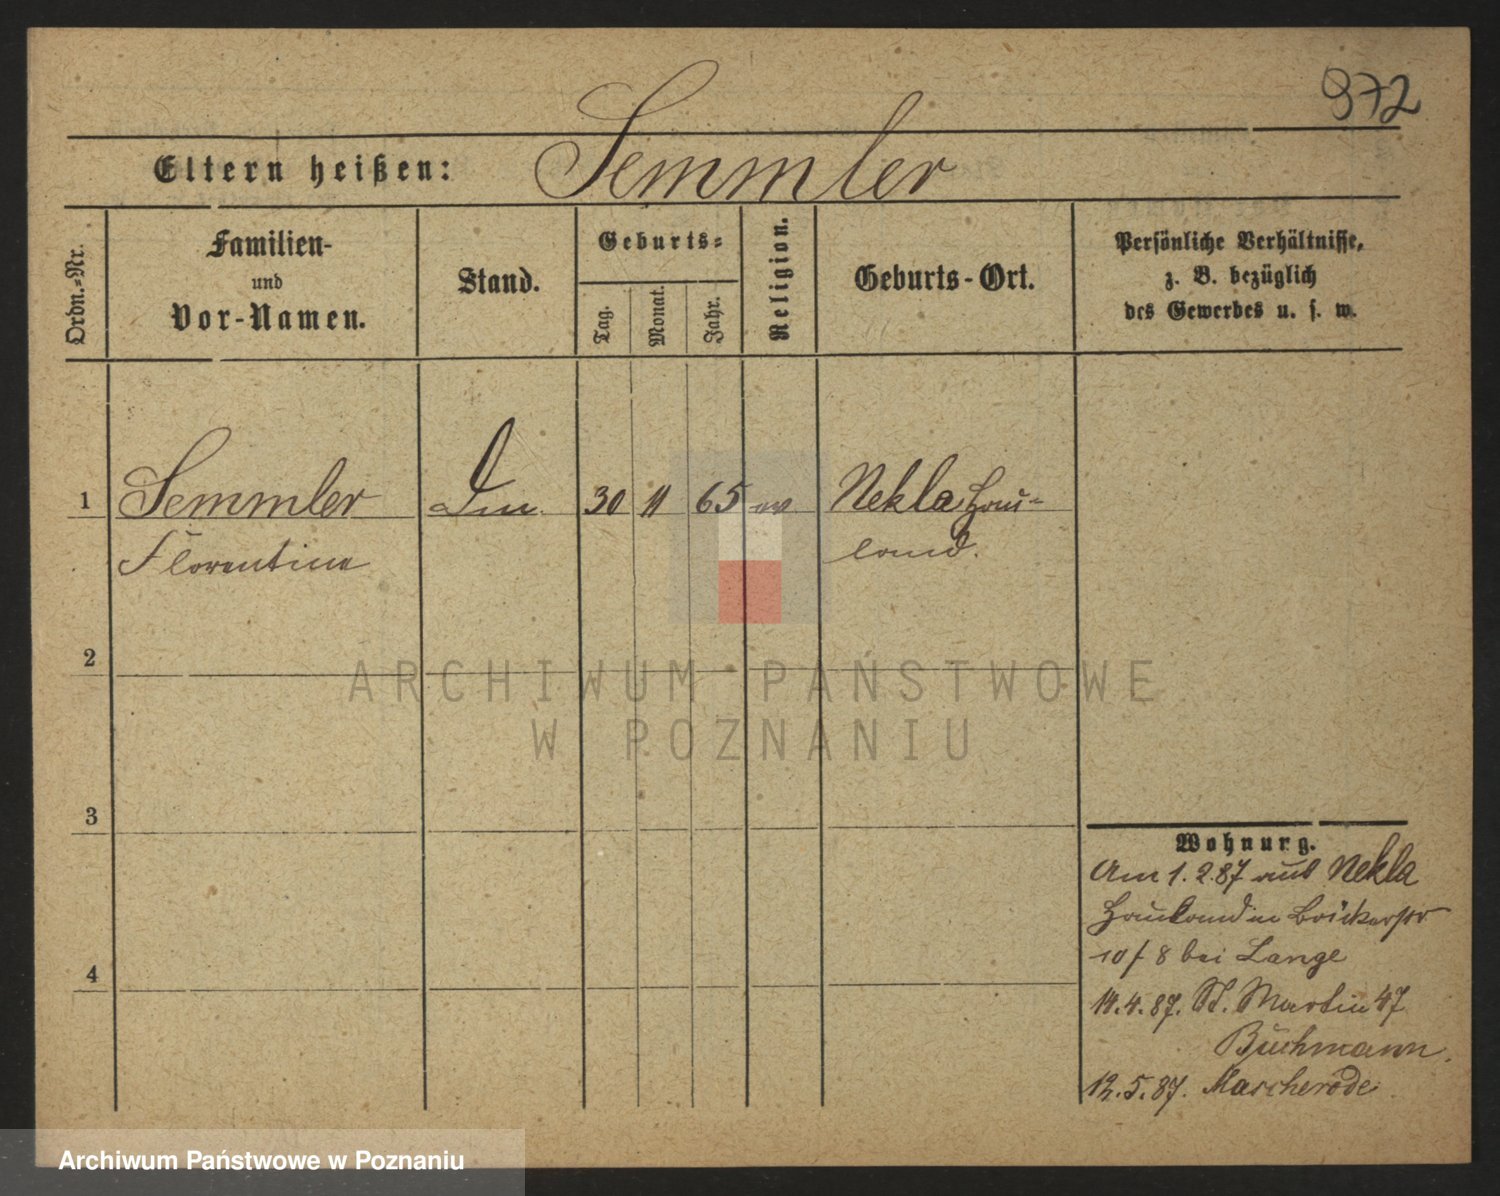 972
Eltern heißen: Semmler
Ordn.-Nr.
Familien-
und
Vor-Namen.
Stand.
Geburts-
Tag.
Monat.
Jahr.
Religion.
Geburts-Ort.
Persönliche Verhältnisse,
z. B. bezüglich
des Gewerbes u. s. w.
1 Semmler 30 11 65 ev Nekla Hau-
Florentine land.
2
3
4
Wohnung.
Am 1.2.87 aus Nekla
Hauland in
10/8 bei Lange
14.4.87. St. Martin 47
Buchmann.
12.5.87. Mascherode
ARCHIWUM PAŃSTWOWE
W POZNANIU
Archiwum Państwowe w Poznaniu